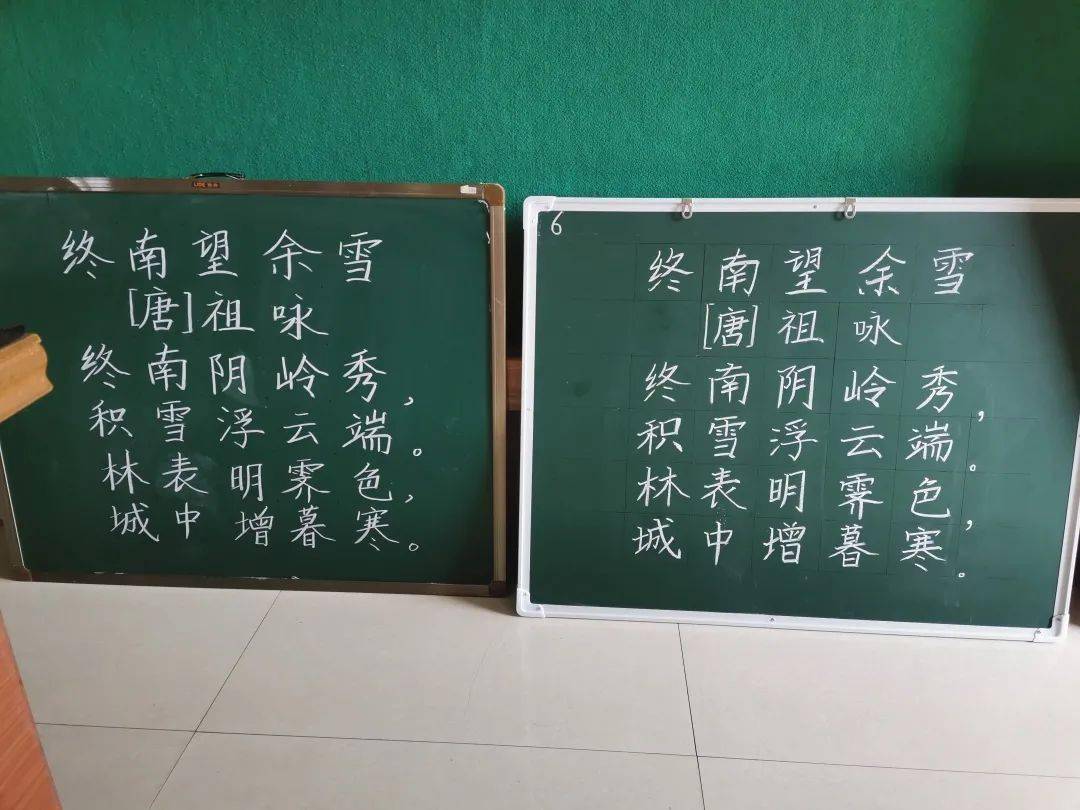 终南望余雪
[唐]祖咏
终南阴岭秀,
积雪浮云端。
林表明霁色,
城中增暮寒。
6
终南望余雪
[唐]祖咏
终南阴岭秀,
积雪浮云端。
林表明霁色,
城中增暮寒。